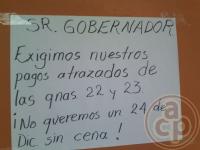 SR. GOBERNADOR
Exigimos nuestros
pagos atrazados de
las qnas 22 y 23.
¡No queremos un 24 de
Dic. sin cena!
acp